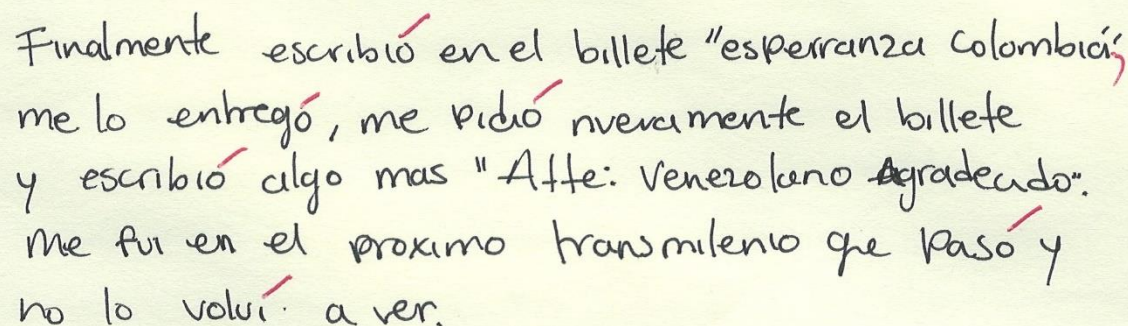 Finalmente escribió en el billete "esperranza Colombia",
me lo entregó, me pidió nuevamente el billete
y escribió algo mas "Atte: Venezolano Agradecido".
Me fui en el proximo transmilenio que pasó y
no lo volví a ver.